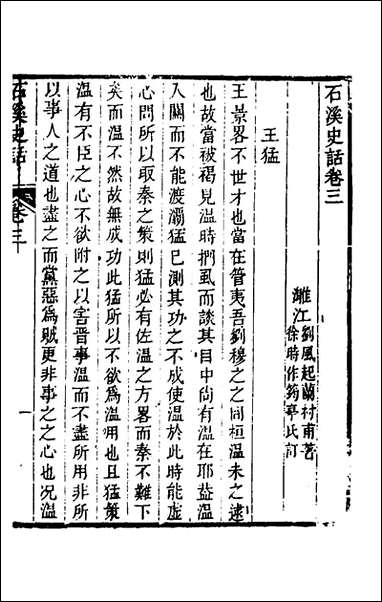 石溪史話卷三
濰江劉風起蘭村甫著
徐時作筠亭氏訂
王猛
王景畧不世才也當在管夷吾劉穆之之間桓溫未之逮
也故當被褐見溫時捫虱而談其目中尚有溫在耶益溫
入關而不能渡灞猛已測其功之不成使溫於此時能虛
心問所以取秦之策則猛必有佐溫之方畧而秦不難下
矣而溫不然故無成功此猛所以不欲爲溫用也且猛策
溫有不臣之心不欲附之以害晉事溫而不盡所用非所
以事人之道也盡之而黨惡爲賊更非事之之心也况溫
石溪史話
卷三
一